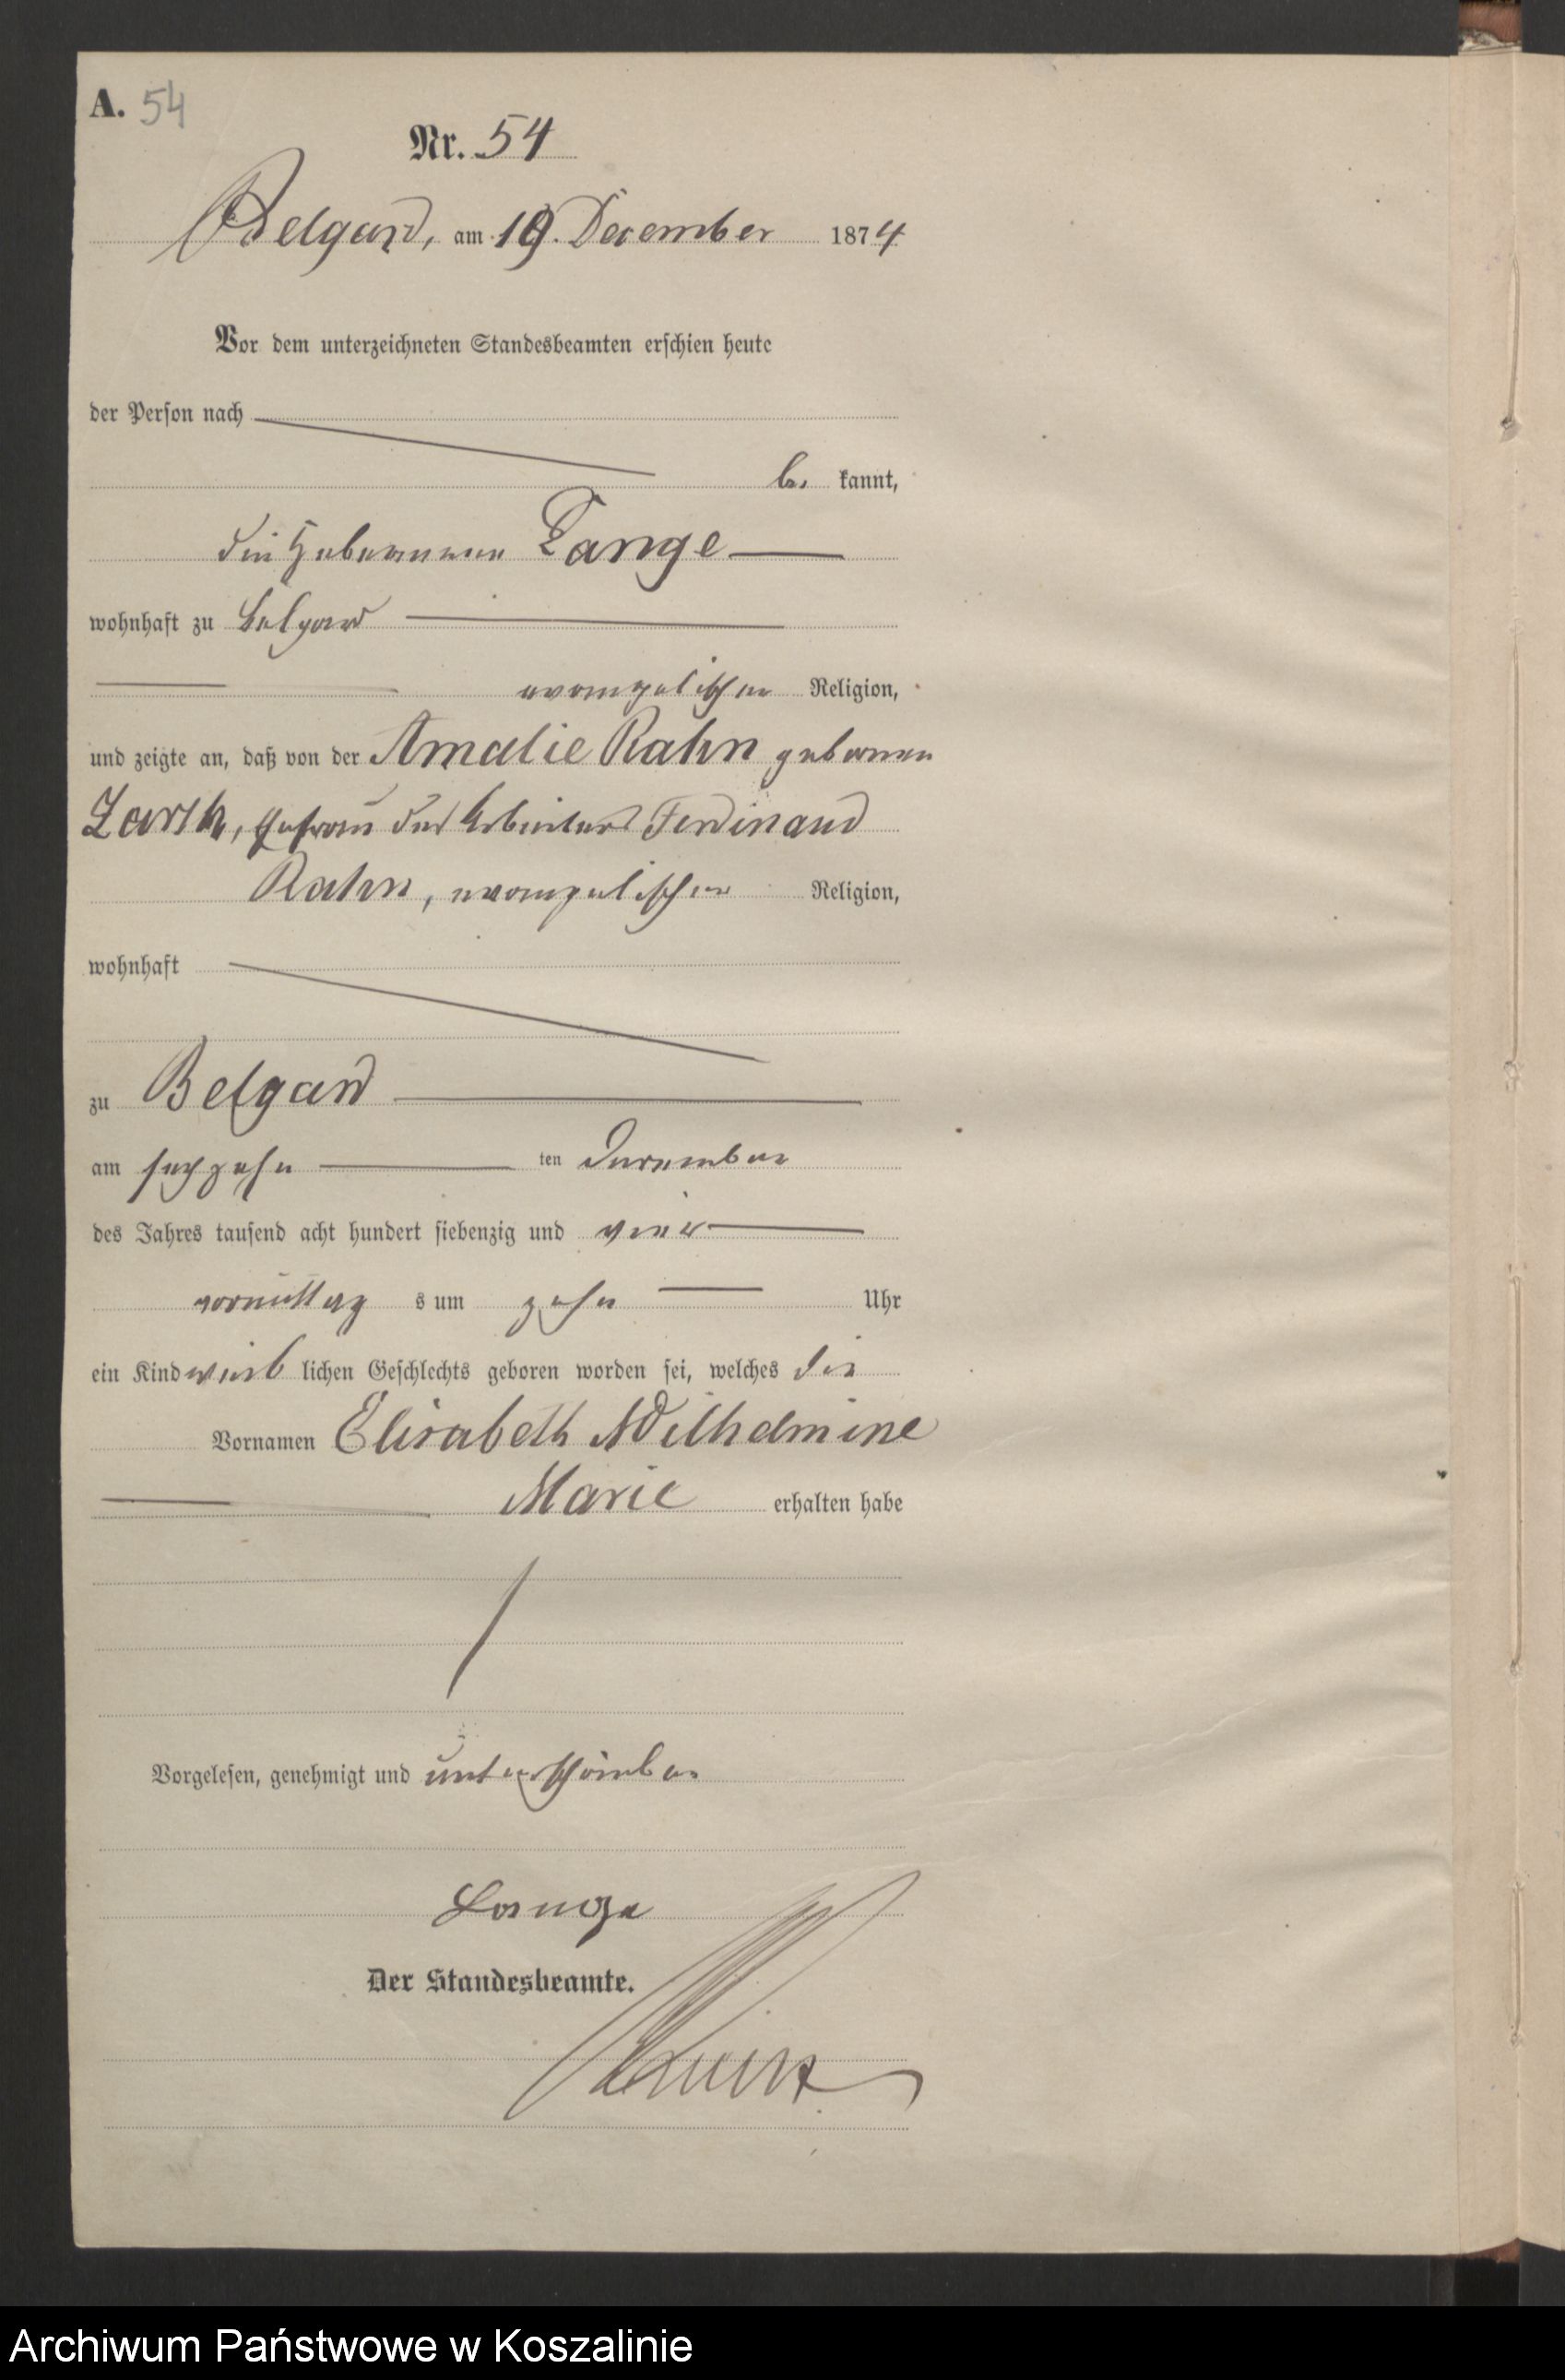 A. 54
Nr. 54
Belgard, am 19. December 1874
Vor dem unterzeichneten Standesbeamten erschien heute
der Person nach
be kannt,
die Hebamme Lange
wohnhaft zu Belgard
evangelischer Religion,
und zeigte an, daß von der Amalie Rahn geborenen
Ehefrau des Arbeiters Ferdinand
Rahn, evangelischer Religion,
wohnhaft
zu Belgard
am sechzehn ten Dezember
des Jahres tausend acht hundert siebenzig und vier
vormittag s um zehn Uhr
ein Kind weib lichen Geschlechts geboren worden sei, welches die
Vornamen Elisabeth Wilhelmine
Marie erhalten habe
Vorgelesen, genehmigt und unterschrieben
Lange
Der Standesbeamte.
Archiwum Państwowe w Koszalinie